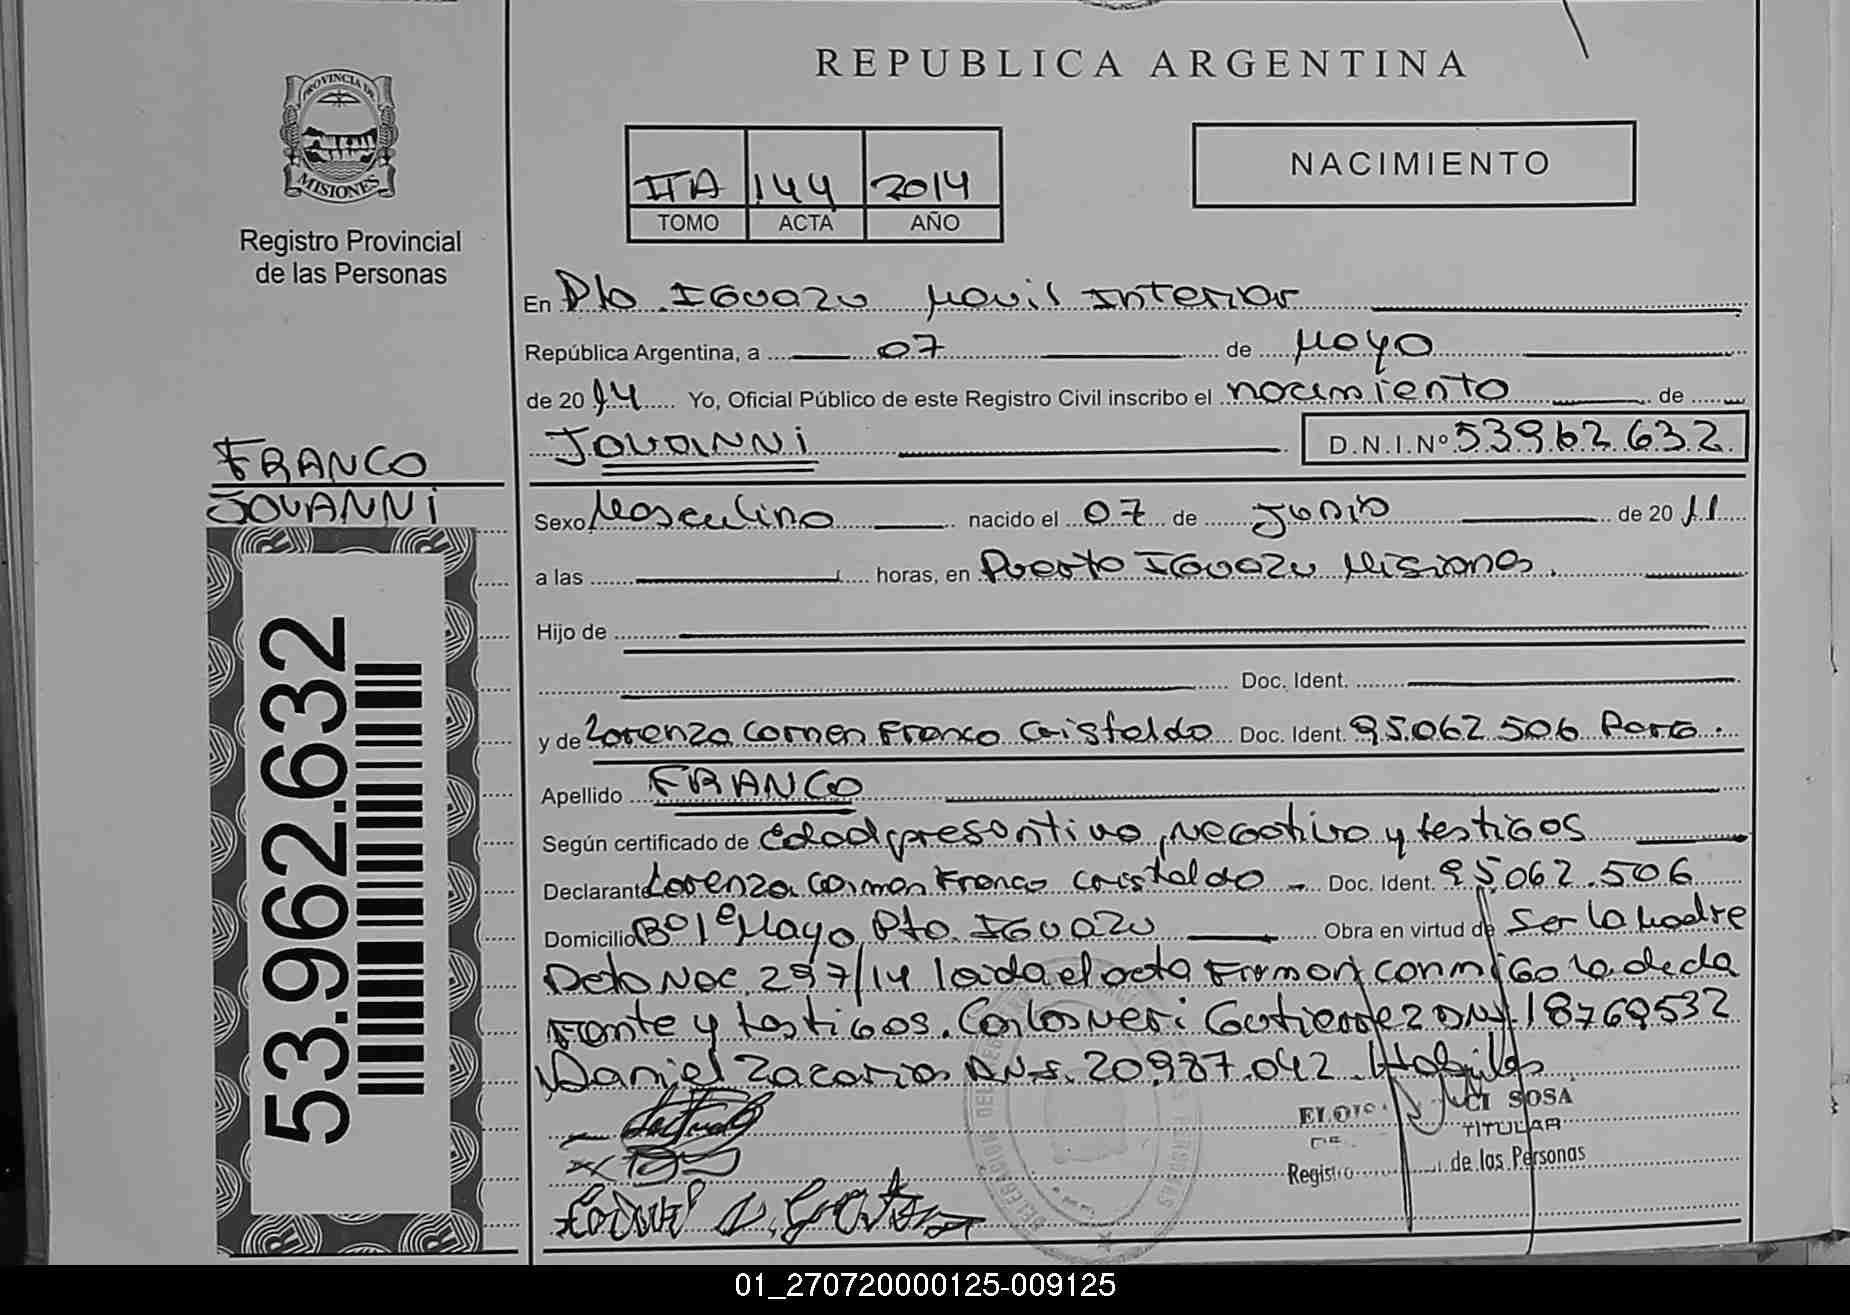 PROVINCIA DE
MISIONES
Registro Provincial
de las Personas
REPUBLICA ARGENTINA
ITA 144 2014
TOMO ACTA AÑO
NACIMIENTO
En Pto Iguazu Movil Interior
República Argentina, a 07 de Mayo
de 2014 Yo, Oficial Público de este Registro Civil inscribo el nacimiento de
Jovanni D.N.I.Nº 53962632
FRANCO
JOVANNI
Sexo Masculino nacido el 07 de Junio de 2011
a las horas, en Puerto Iguazu Misiones.
Hijo de
Doc. Ident.
y de Lorenza Carmen Franco Cristaldo Doc. Ident. 95.062.506 Para.
Apellido FRANCO
Según certificado de Edad presontivo, negativo y testigos
Declarante Lorenza Carmen Franco Cristaldo Doc. Ident. 95.062.506
Domicilio Bº 1º Mayo Pto. Iguazu Obra en virtud de Ser la Madre
Dcto Nac 297/14 leida el acta Firman conmigo la decla
rante y testigos. Carlos Neri Gutierrez DNI 18769532
Daniel Zacarias DNI. 20.987.042. Habiles
SOSA
TITULAR
Registro de las Personas
53.962.632
01_270720000125-009125